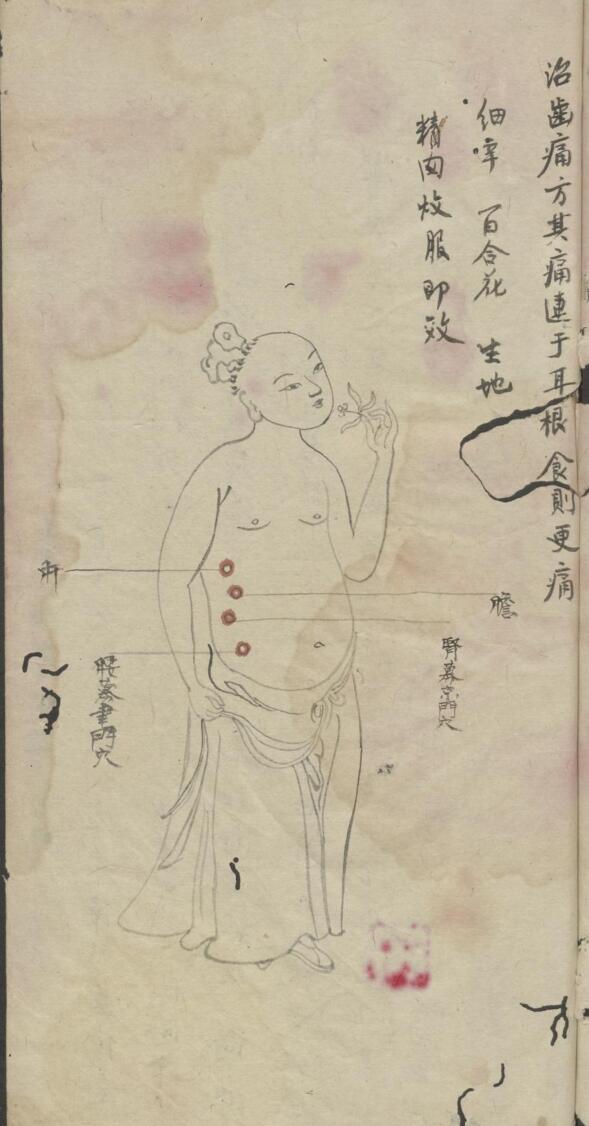 治齒痛方其痛連于耳根食則更痛
细辛 百合花 生地
精肉炆服即效
肝
膽
腎募京門穴
脾募章門穴